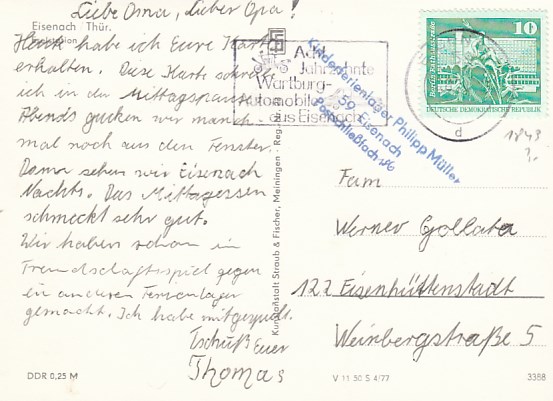 Liebe Oma, Lieber Opa!
Eisenach Thür.
Heute habe ich Eure Karte
erhalten. Diese Karte schreib
ich in der Mittagspause
Abends gucken wir manch-
mal noch aus den Fenster.
Dann sehen wir Eisenach
Nachts. Das Mittagessen
schmeckt sehr gut.
Wir haben schon in
Freundschaftsspiel gegen
ein anderen Ferienlager
gemacht. Ich habe mitgespielt.
Tschuß Euer
Thomas
DDR 0,25 M
Kunstanstalt Straub & Fischer, Meiningen - Reg.
Acht
Jahrzehnte
Wartburg-
automobile
aus Eisenach
Kinderferienlager Philipp Müller
59 Eisenach
Postschließfach 186
10
Berlin Rathausstraße
DEUTSCHE DEMOKRATISCHE REPUBLIK
d
Fam
Werner Gollata
122 Eisenhüttenstadt
Weinbergstraße 5
V 11 50 S 4/77
3388